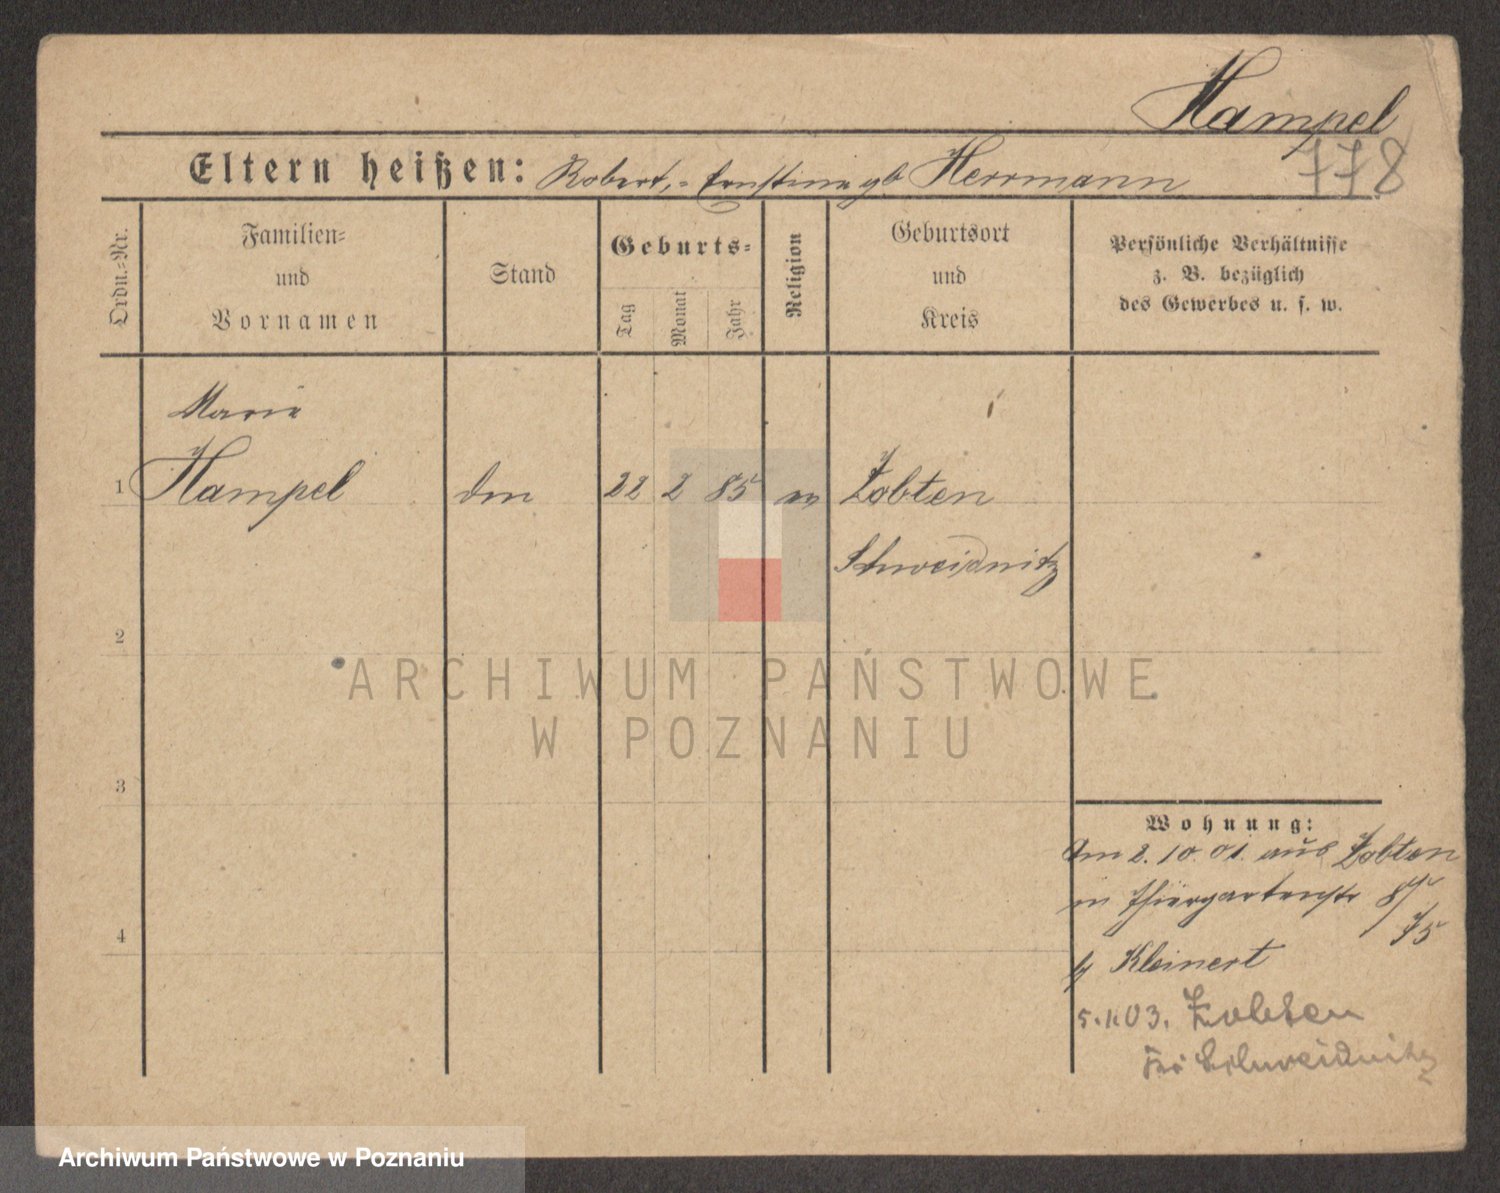 Hampel
Eltern heißen: Robert, Ernstine gb Herrmann
778
Ordn.=Nr.
Familien=
und
Vornamen
Stand
Geburts=
Tag
Monat
Jahr
Religion
Geburtsort
und
Kreis
Persönliche Verhältnisse
z. B. bezüglich
des Gewerbes u. s. w.
Marie
1 Hampel 22 2 85 Zobten
Schweidnitz
2
ARCHIWUM PAŃSTWOWE
W POZNANIU
3
4
Wohnung:
Am 2. 10. 01. aus Zobten
in Thiergartenstr
b/ Kleinert
5.1.03. Zobten
Schweidnitz
Archiwum Państwowe w Poznaniu